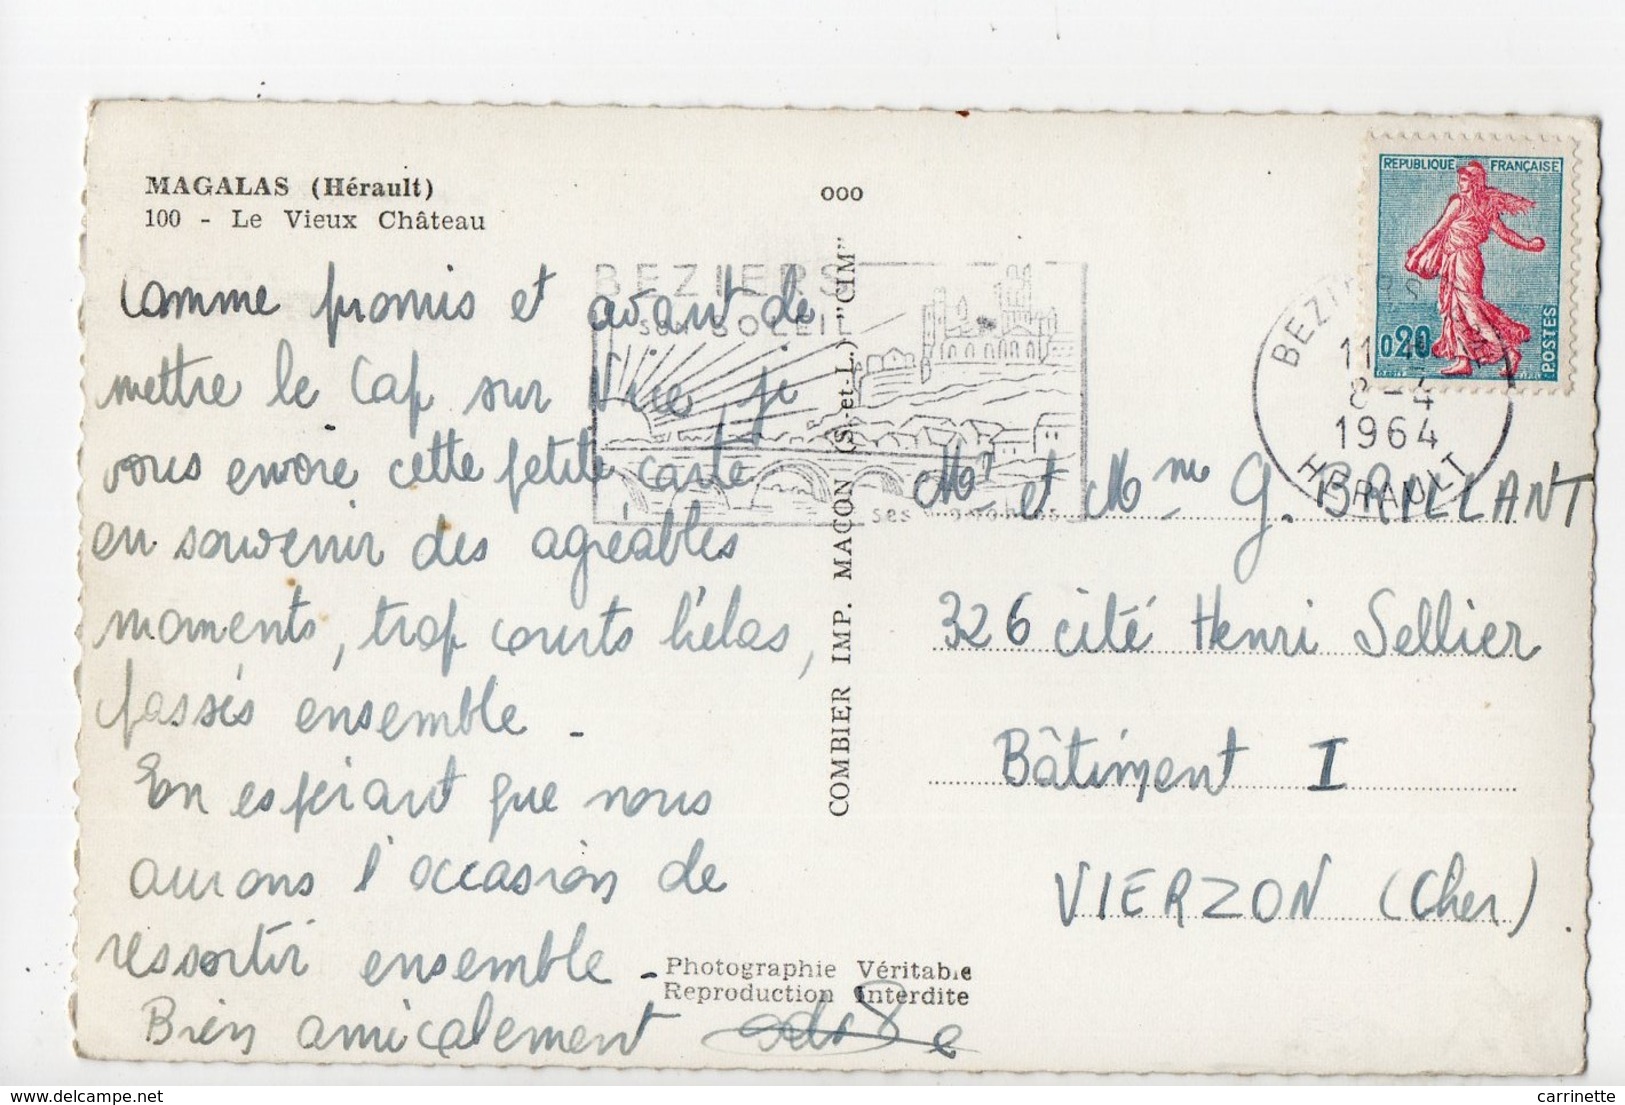 MAGALAS (Hérault)
100 - Le Vieux Château
ooo
Comme promis et avant de
mettre le Cap sur Nice, je
vous envoie cette petite carte
en souvenir des agréables
moments, trop courts hélas,
passés ensemble -
En espérant que nous
aurons l'occasion de
ressortir ensemble -
Bien amicalement
BEZIERS
son SOLEIL
ses
COMBIER IMP. MACON (S.-et-L.) "CIM"
Photographie Véritable
Reproduction Interdite
REPUBLIQUE FRANÇAISE
0,20
POSTES
BEZIERS
11
8-4
1964
HERAULT
Mr et Mme G. BRILLANT
326 cité Henri Sellier
Bâtiment I
VIERZON (Cher)
delcampe.net
carrinette